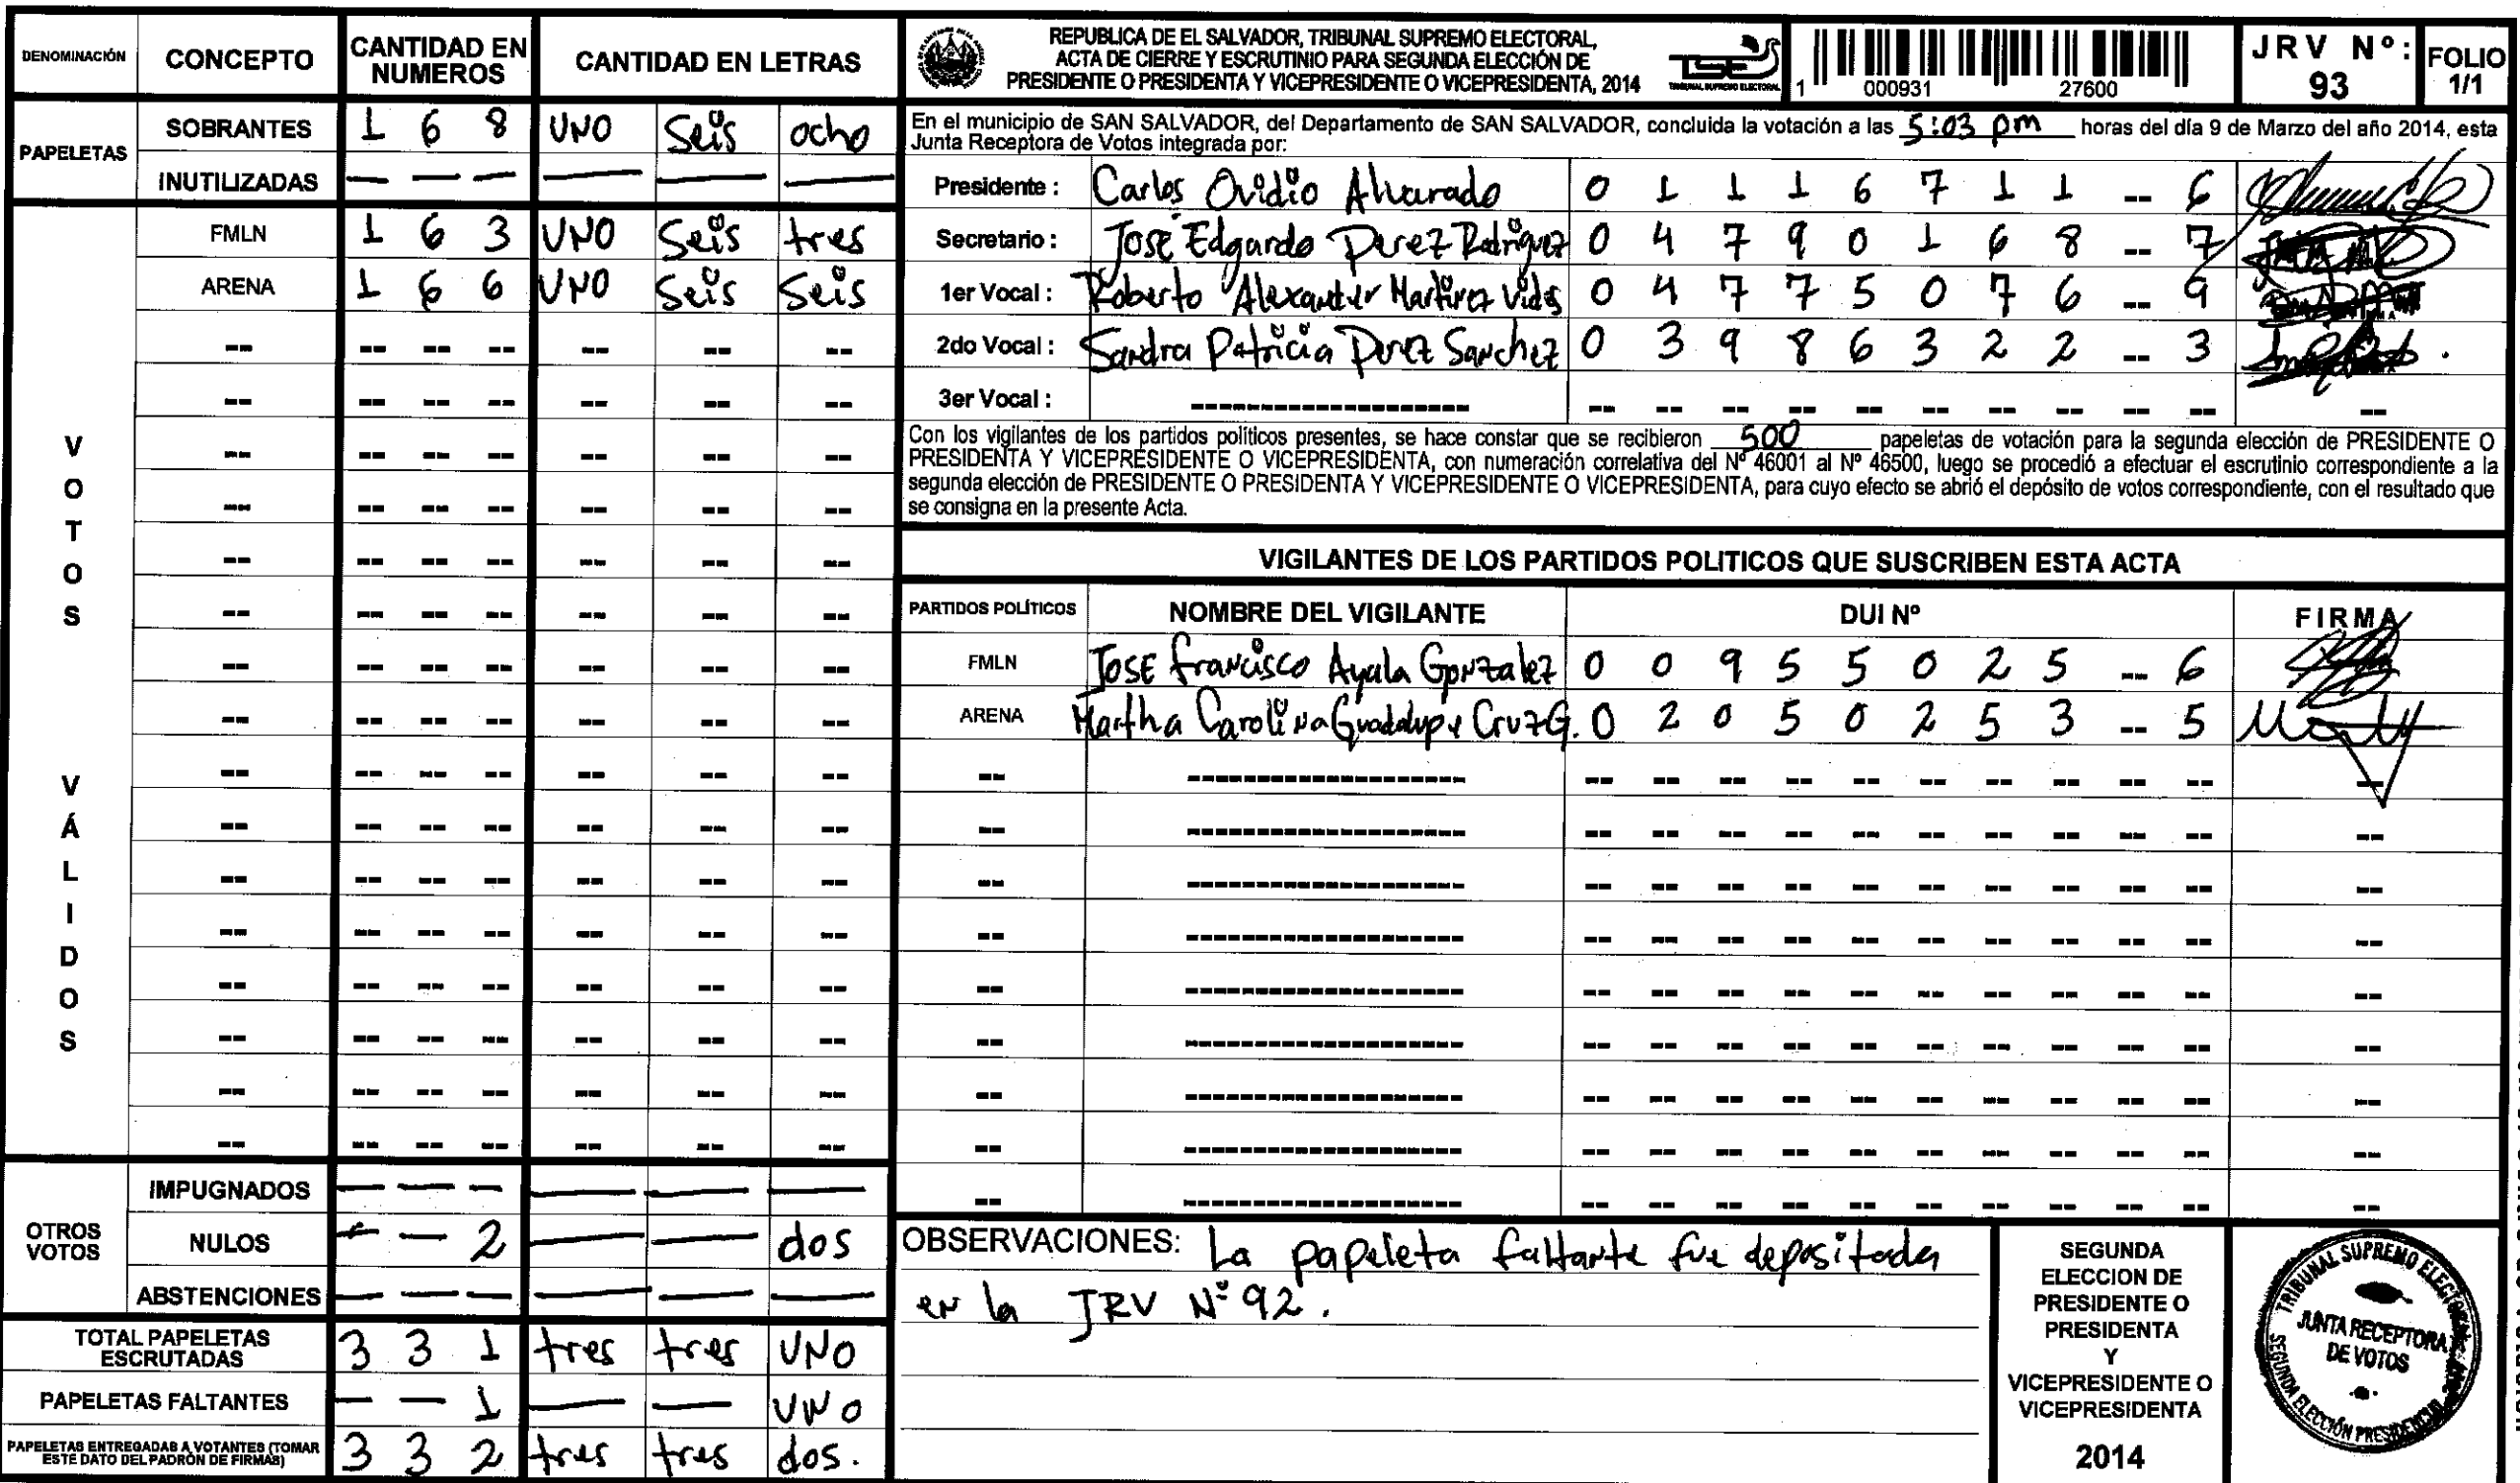 DENOMINACIÓN CONCEPTO CANTIDAD EN NUMEROS CANTIDAD EN LETRAS
PAPELETAS
SOBRANTES 1 6 8 UNO Seis ocho
INUTILIZADAS — — — — — —
VOTOS VÁLIDOS
FMLN 1 6 3 UNO Seis tres
ARENA 1 6 6 UNO Seis Seis
OTROS VOTOS
IMPUGNADOS — — — — — —
NULOS — — 2 — — dos
ABSTENCIONES — — — — — —
TOTAL PAPELETAS ESCRUTADAS 3 3 1 tres tres UNO
PAPELETAS FALTANTES — — 1 — — UNO
PAPELETAS ENTREGADAS A VOTANTES (TOMAR ESTE DATO DEL PADRÓN DE FIRMAS) 3 3 2 tres tres dos.
REPUBLICA DE EL SALVADOR, TRIBUNAL SUPREMO ELECTORAL,
ACTA DE CIERRE Y ESCRUTINIO PARA SEGUNDA ELECCIÓN DE
PRESIDENTE O PRESIDENTA Y VICEPRESIDENTE O VICEPRESIDENTA, 2014
TSE
TRIBUNAL SUPREMO ELECTORAL
1 000931 27600
JRV Nº: 93
FOLIO 1/1
En el municipio de SAN SALVADOR, del Departamento de SAN SALVADOR, concluida la votación a las 5:03 pm horas del día 9 de Marzo del año 2014, esta
Junta Receptora de Votos integrada por:
Presidente : Carlos Ovidio Alvarado 0 1 1 1 6 7 1 1 -- 6
Secretario : José Edgardo Perez Rodriguez 0 4 7 9 0 1 6 8 -- 7
1er Vocal : Roberto Alexander Martinez Vides 0 4 7 7 5 0 7 6 -- 9
2do Vocal : Sandra Patricia Perez Sanchez 0 3 9 8 6 3 2 2 -- 3
3er Vocal :
Con los vigilantes de los partidos políticos presentes, se hace constar que se recibieron 500 papeletas de votación para la segunda elección de PRESIDENTE O
PRESIDENTA Y VICEPRESIDENTE O VICEPRESIDENTA, con numeración correlativa del Nº 46001 al Nº 46500, luego se procedió a efectuar el escrutinio correspondiente a la
segunda elección de PRESIDENTE O PRESIDENTA Y VICEPRESIDENTE O VICEPRESIDENTA, para cuyo efecto se abrió el depósito de votos correspondiente, con el resultado que
se consigna en la presente Acta.
VIGILANTES DE LOS PARTIDOS POLITICOS QUE SUSCRIBEN ESTA ACTA
PARTIDOS POLÍTICOS NOMBRE DEL VIGILANTE DUI Nº FIRMA
FMLN Jose francisco Ayala Gonzalez 0 0 9 5 5 0 2 5 -- 6
ARENA Martha Carolina Guadalupe Cruz G. 0 2 0 5 0 2 5 3 -- 5
OBSERVACIONES: La papeleta faltante fue depositada
en la JRV Nº 92.
SEGUNDA
ELECCION DE
PRESIDENTE O
PRESIDENTA
Y
VICEPRESIDENTE O
VICEPRESIDENTA
2014
TRIBUNAL SUPREMO ELECTORAL
JUNTA RECEPTORA
DE VOTOS
SEGUNDA ELECCIÓN PRESIDENCIAL